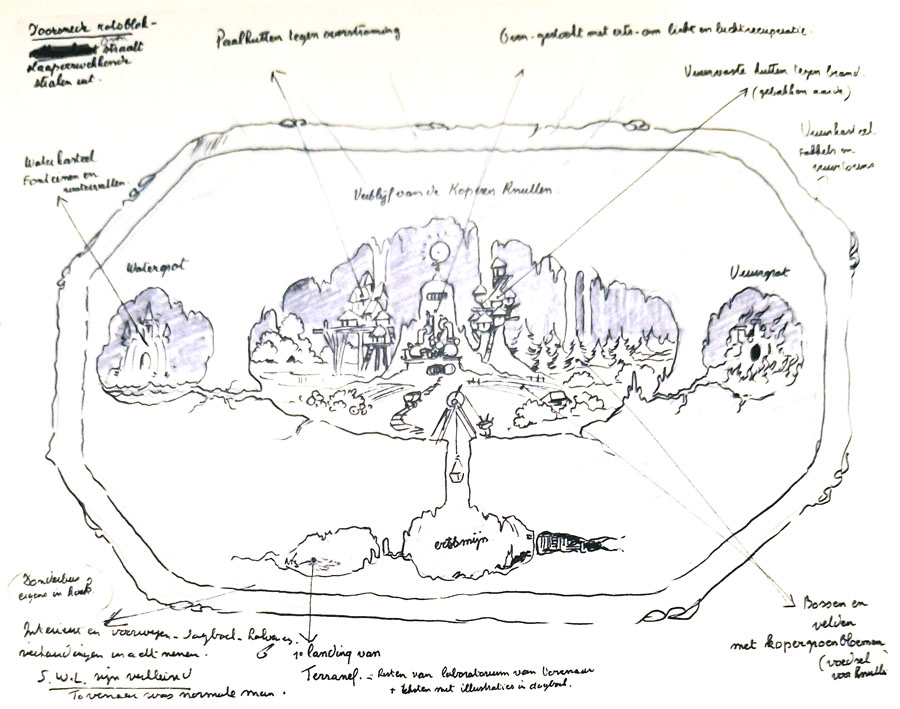 Doorsnede rotsblok-
straalt
slaapverwekkende
stralen uit.
Paalhutten tegen overstroming
Oven - gestookt met erts - om licht en luchtrecuperatie.
Vuurvaste hutten tegen brand.
(gebakken aarde)
Vuurkasteel
Fakkels en
vuurtorens
Waterkasteel
Fonteinen en
watervallen.
Verblijf van de Koperen Knullen.
Watergrot
Vuurgrot
ertsmijn
Donderbus?
ergens in hoek
Interieur en voorwerpen - dagboek -
verhoudingen in acht nemen.
S.W.L. zijn verkleind
Tovenaar was normale man.
1e landing van
Terranef. - Resten van laboratorium van tovenaar
+ teksten met illustraties in dagboek.
Bossen en
velden
met kopergroen bloemen
(voedsel
voor Knullen